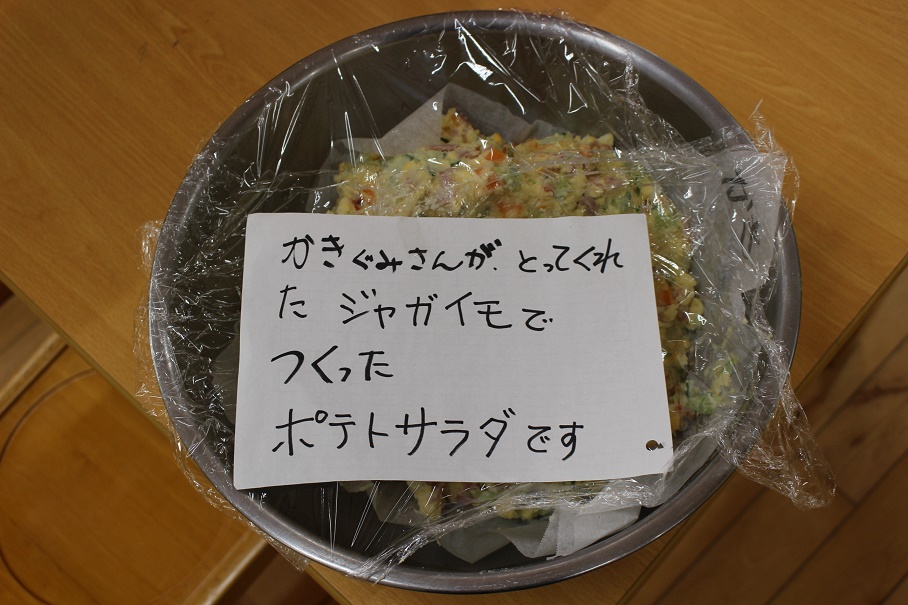 かきぐみさんが、とってくれ
た ジャガイモで
つくった
ポテトサラダです